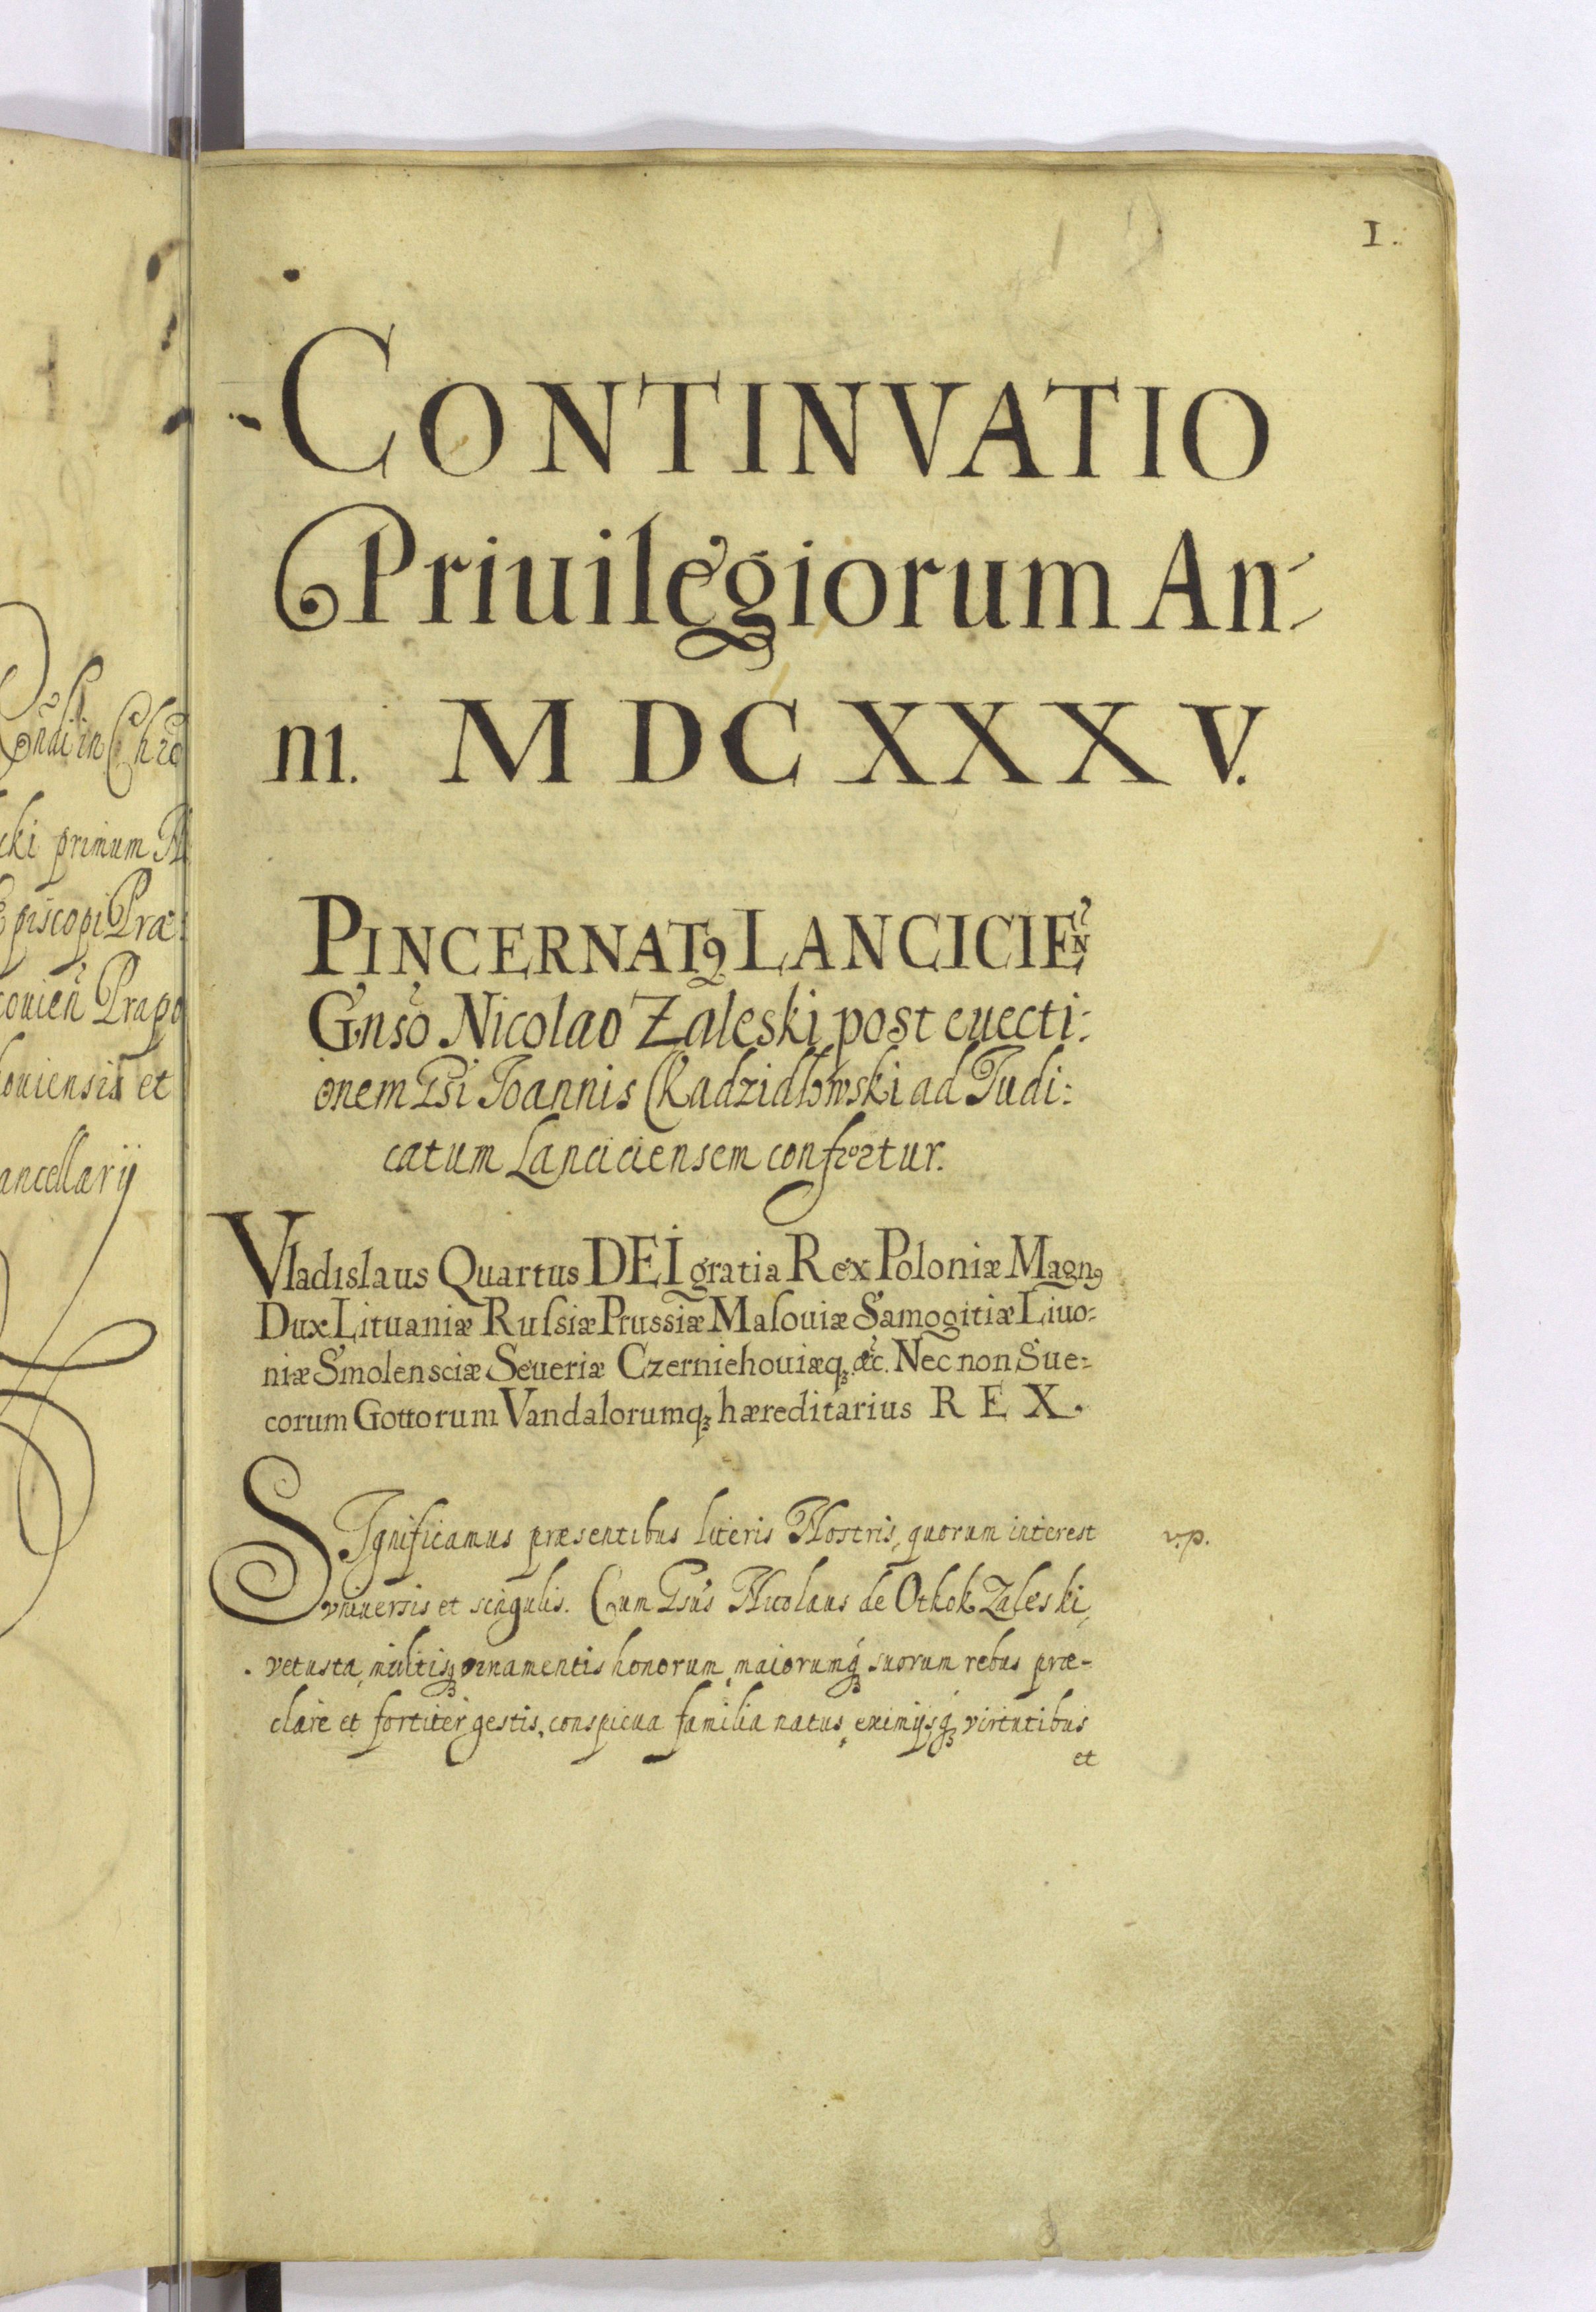 I.
CONTINVATIO
Priuilegiorum An-
ni. M DC XXX V.
PINCERNATꝰ LANCICIEN
Gnso Nicolao Zaleski post euecti:
onem Gsi Ioannis Kadzidłowski ad Iudi:
catum Lanciciensem confertur.
Vladislaus Quartus DEI gratia Rex Poloniæ Magnꝰ
Dux Lituaniæ Rusſiæ Prussiæ Masouiæ Samogitiæ Liuo-
niæ Smolensciæ Seueriæ Czerniehouiæqꝫ. &c. Nec non Sue-
corum Gottorum Vandalorumqꝫ hæreditarius REX.
SIgnificamus præsentibus literis Nostris, quorum interest
v.p.
vniuersis et singulis. Cum Gsus Nicolaus de Otkok Zaleski,
vetusta, multisqꝫ ornamentis honorum, maiorumqꝫ suorum rebus præ-
clare et fortiter gestis, conspicua familia natus, eximijsqꝫ virtutibus
et
ndi in Chro
cki primum
Episcopi Præ:
couien Præpo
louiensis et
ancellarij